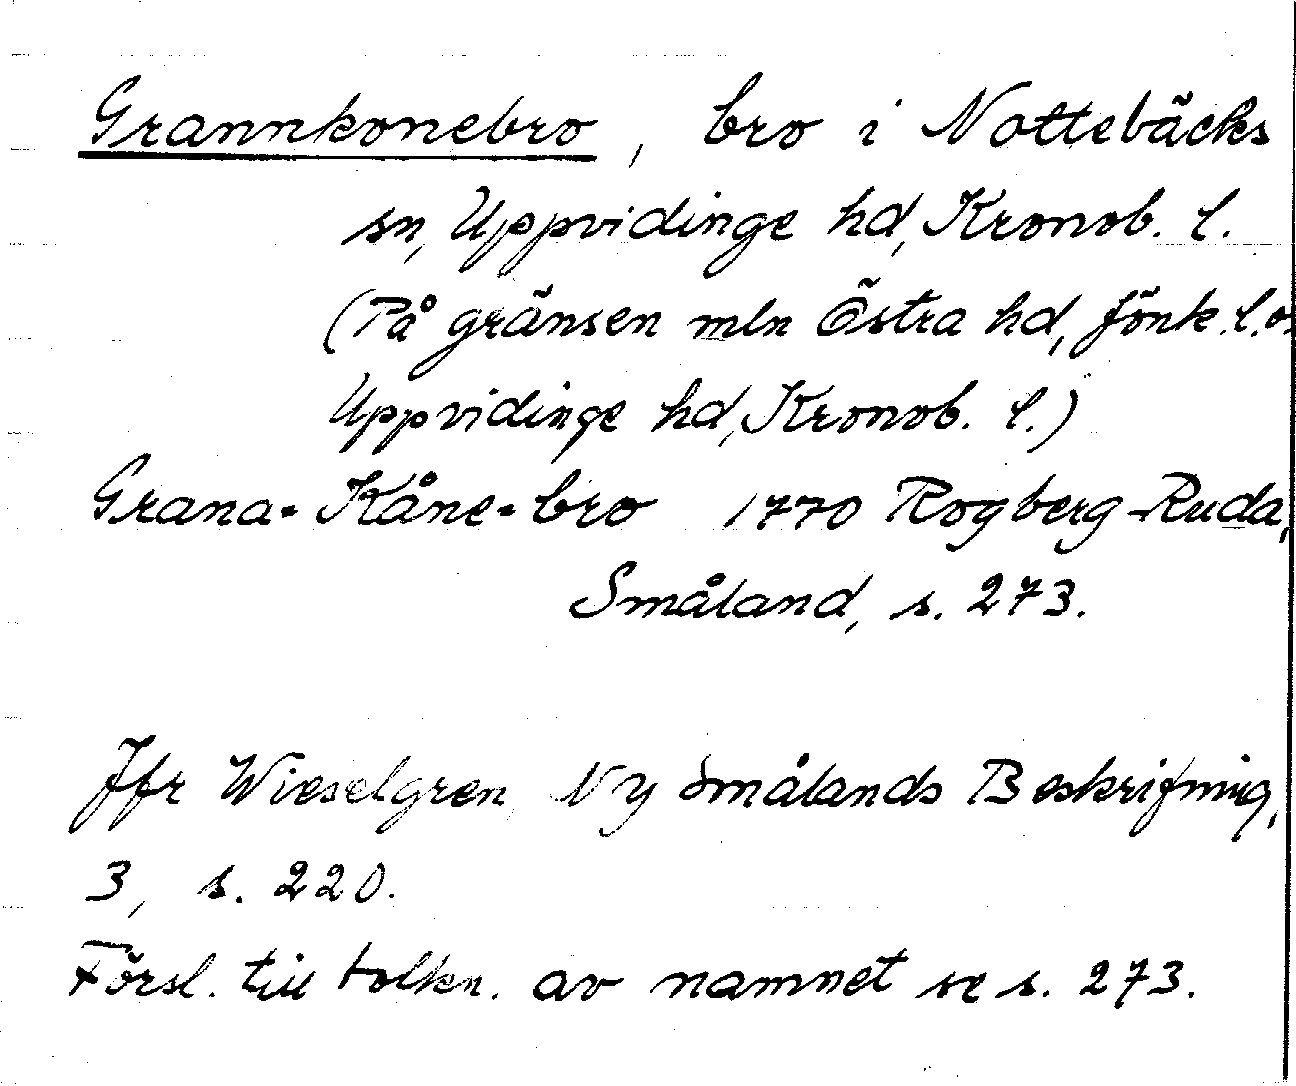 Grannkonebro, bro i Nottebäcks
sn, Uppvidinge hd, Kronob. l.
(På gränsen mln Östra hd, Jönk. l. o.
Uppvidinge hd, Kronob. l.)
Grana-Kåne-bro 1770 Rogberg-Ruda,
Småland, s. 273.
Jfr Wieselgren, Ny Smålands Beskrifning,
3, s. 220.
Försl. till tolkn. av namnet se s. 273.